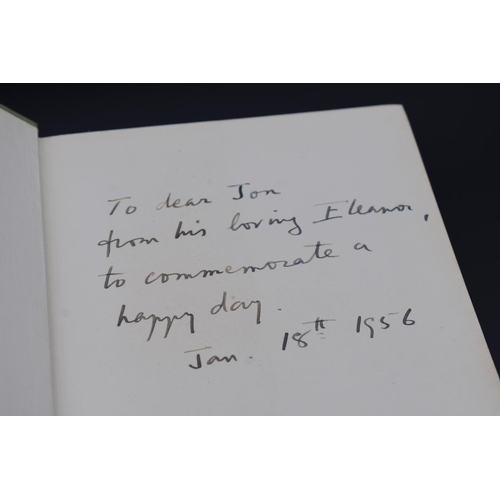 To dear Jon
from his loving Eleanor,
to commemorate a
happy day.
Jan. 18th 1956